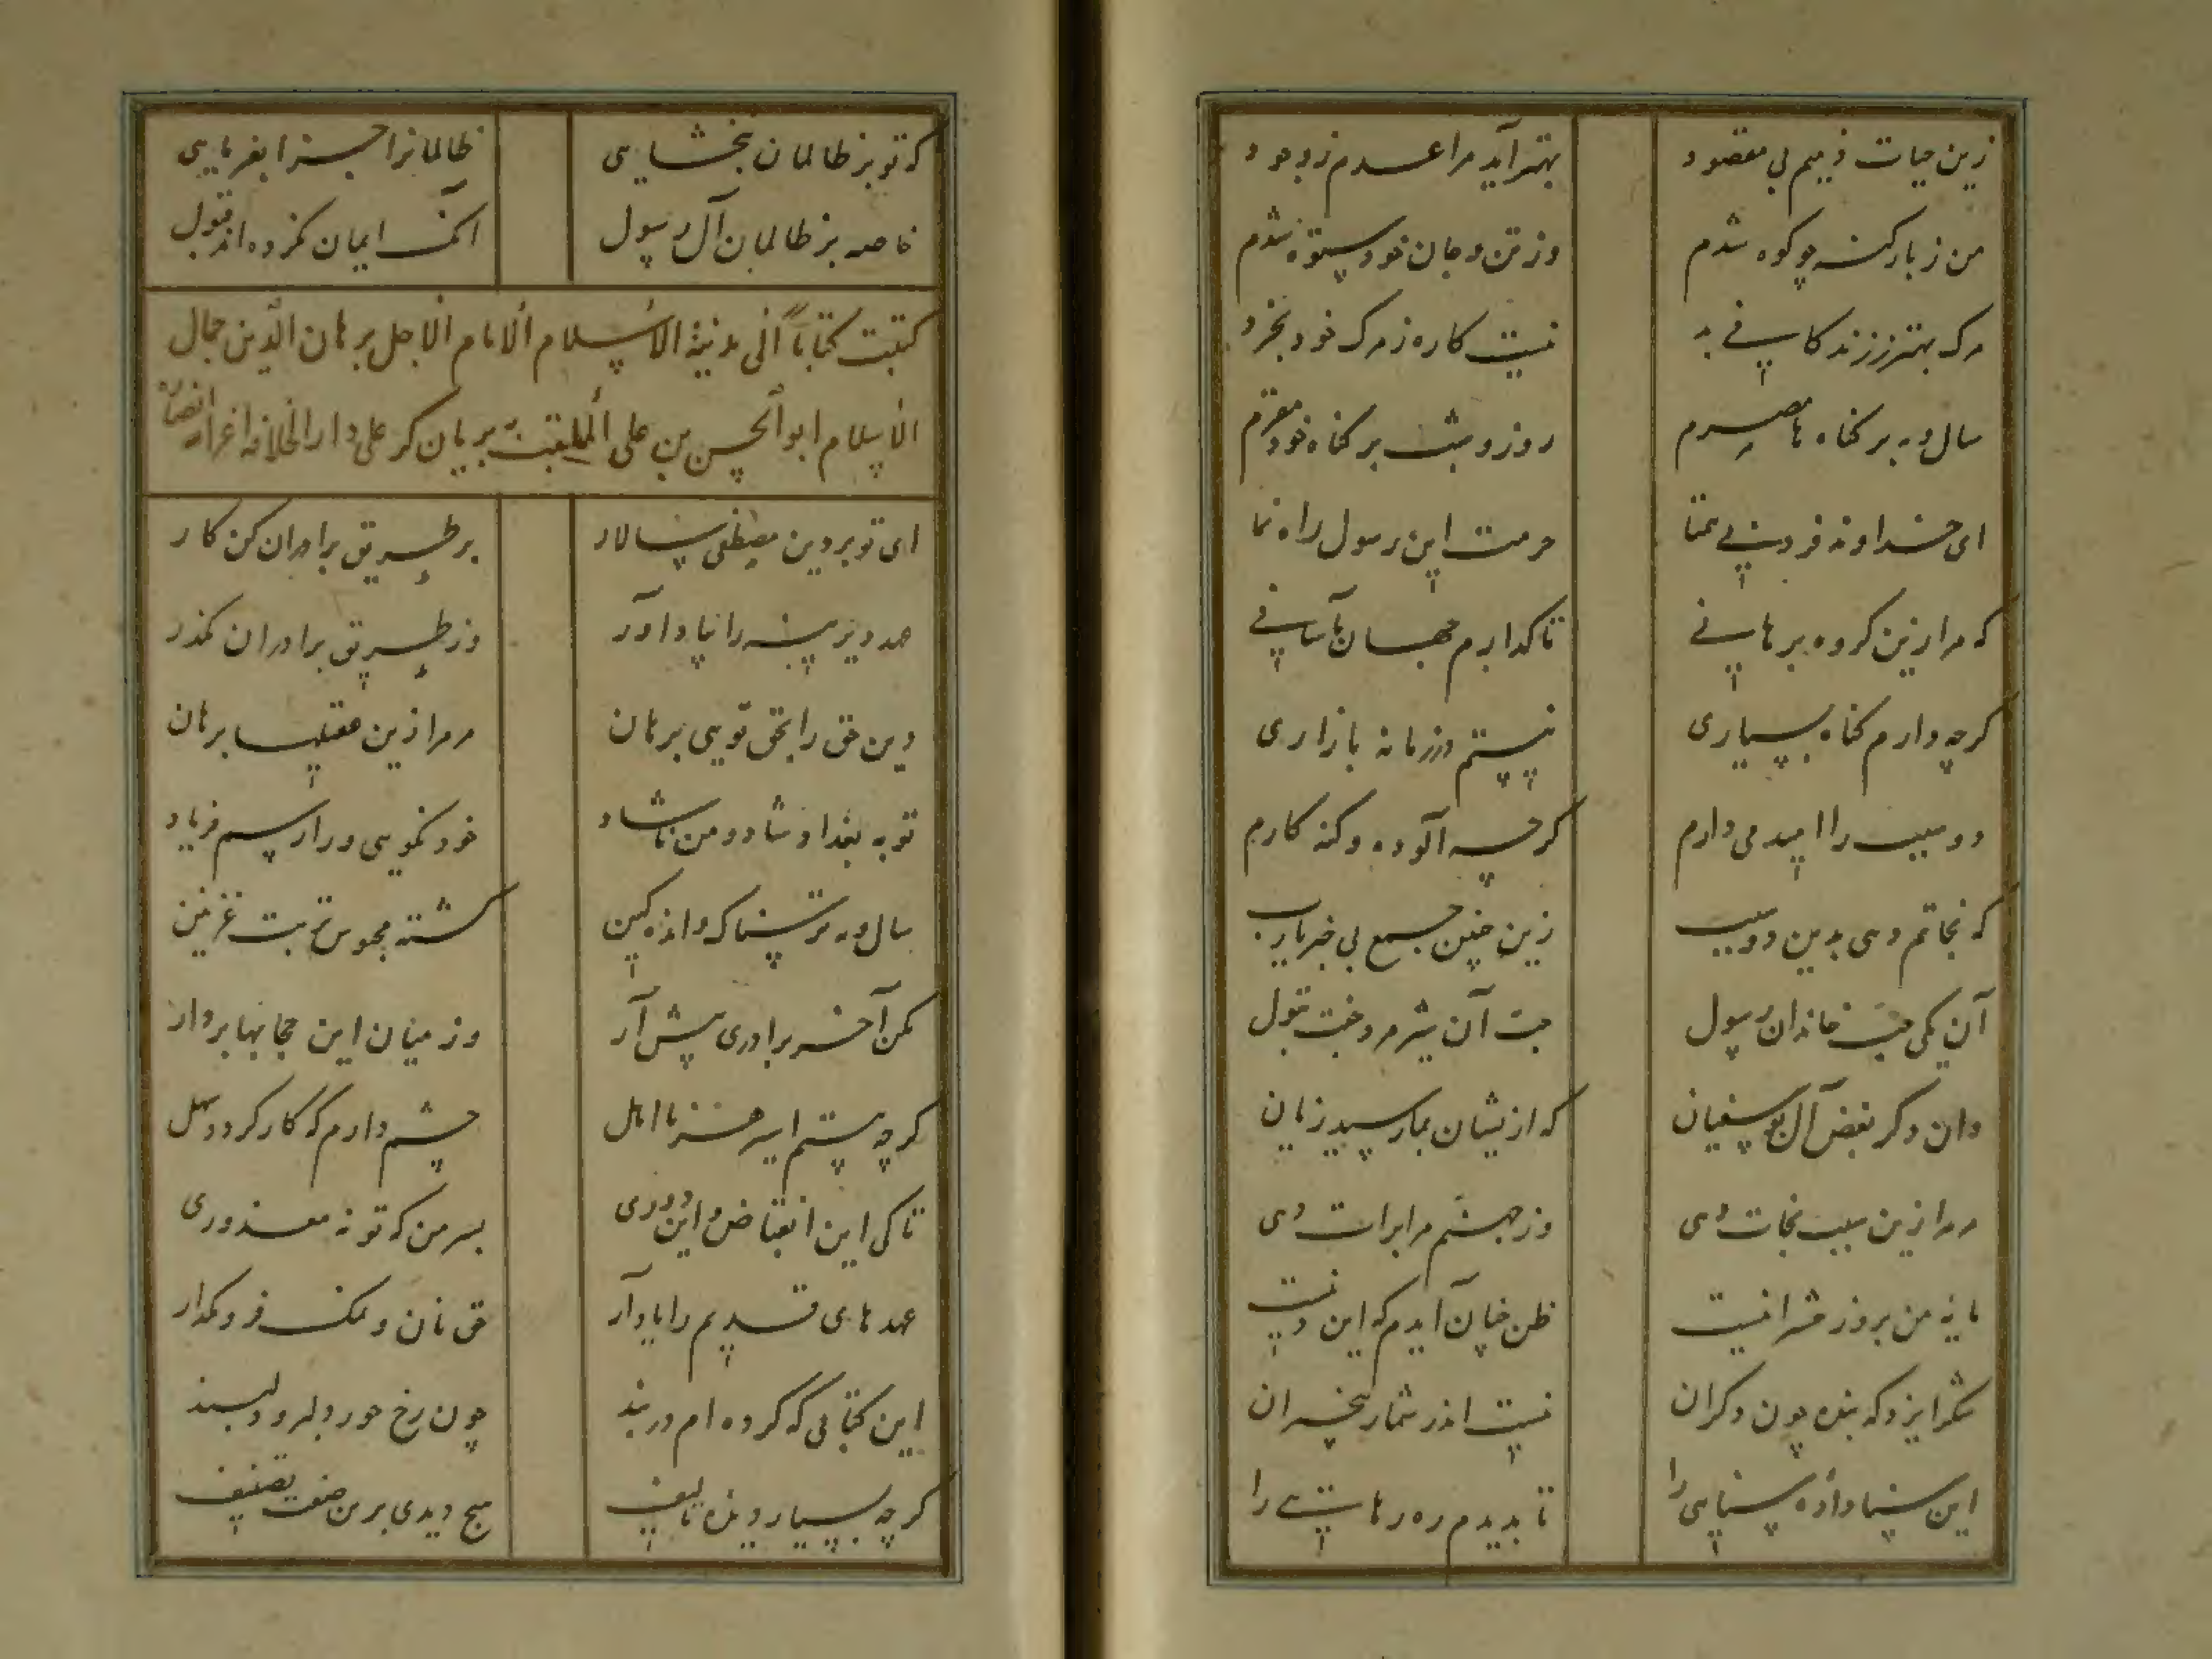 زین حیات ذمیم بی مقصود بهتر آید مرا عدم ز وجود
من ز بار گنه چو کوه شدم وز تن و جان خود ستوه شدم
مرگ بهتر ز زندگانی بد نیست کاره ز مرگ خود بخرد
سال و مه بر گناه ها مصرم روز و شب بر گناه خود مقرم
ای خداوند فرد بی همتا حرمت این رسول راه نما
که مرا زین گروه برهانی تا گذارم جهان بآسانی
گرچه دارم گناه بسیاری نیستم در زمانه بازاری
دو سبب را امید می دارم گرچه آلوده و گنه کارم
که نجاتم دهی بدین دو سبب زین چنین جمع بی خبر یارب
آن یکی حب خاندان رسول حب آن شیر مرد جفت بتول
وان دگر بغض آل بوسفیان که از یشان بما رسید زیان
مر مرا زین سبب نجات دهی وز جهنم مرا برات دهی
مایه من بروز حشر اینست ظن چنان آیدم که این دینست
شکر ایزد که بنده چون دگران نیست اندر شمار بیخبران
این سنا داده سنایی را تا بدیدم ره رهایی را
که تو بر ظالمان بخشایی ظالمانرا جزا بفرمایی
خاصه بر ظالمان آل رسول آنک ایمان نکرده اند قبول
کتبت کتاباً الی مدینة الاسلام الامام الاجل برهان الدین جمال
الاسلام ابو الحسن بن علی الملقب به بریان گر علی دار الخلافه اعز الله انصاره
ای تو بر دین مصطفی سالار بر طریق برادران کن کار
عهد دیرینه را بیاد آور وز طریق برادران مگذر
دین حق را بحق تویی برهان مر مرا زین عقیله برهان
تو به بغداد شاد و من ناشاد خود نگویی ورا رسم فریاد
سال و مه ترسناک و اندهگین گشته محبوس تربت غزنین
مکن آخر برادری پیش آر وز میان این حجابها بردار
گرچه هستم اسیر هر نااهل چشم دارم که کار گردد سهل
تا کی این انقباض و این دوری بسر من که تو نه معذوری
عهد های قدیم را یاد آر حق نان و نمک فرو مگذار
این کتابی که کرده ام در بند چون رخ حور دلبر و دلبند
گرچه بسیار دیده تالیف هیچ دیدی برین صفت تصنیف